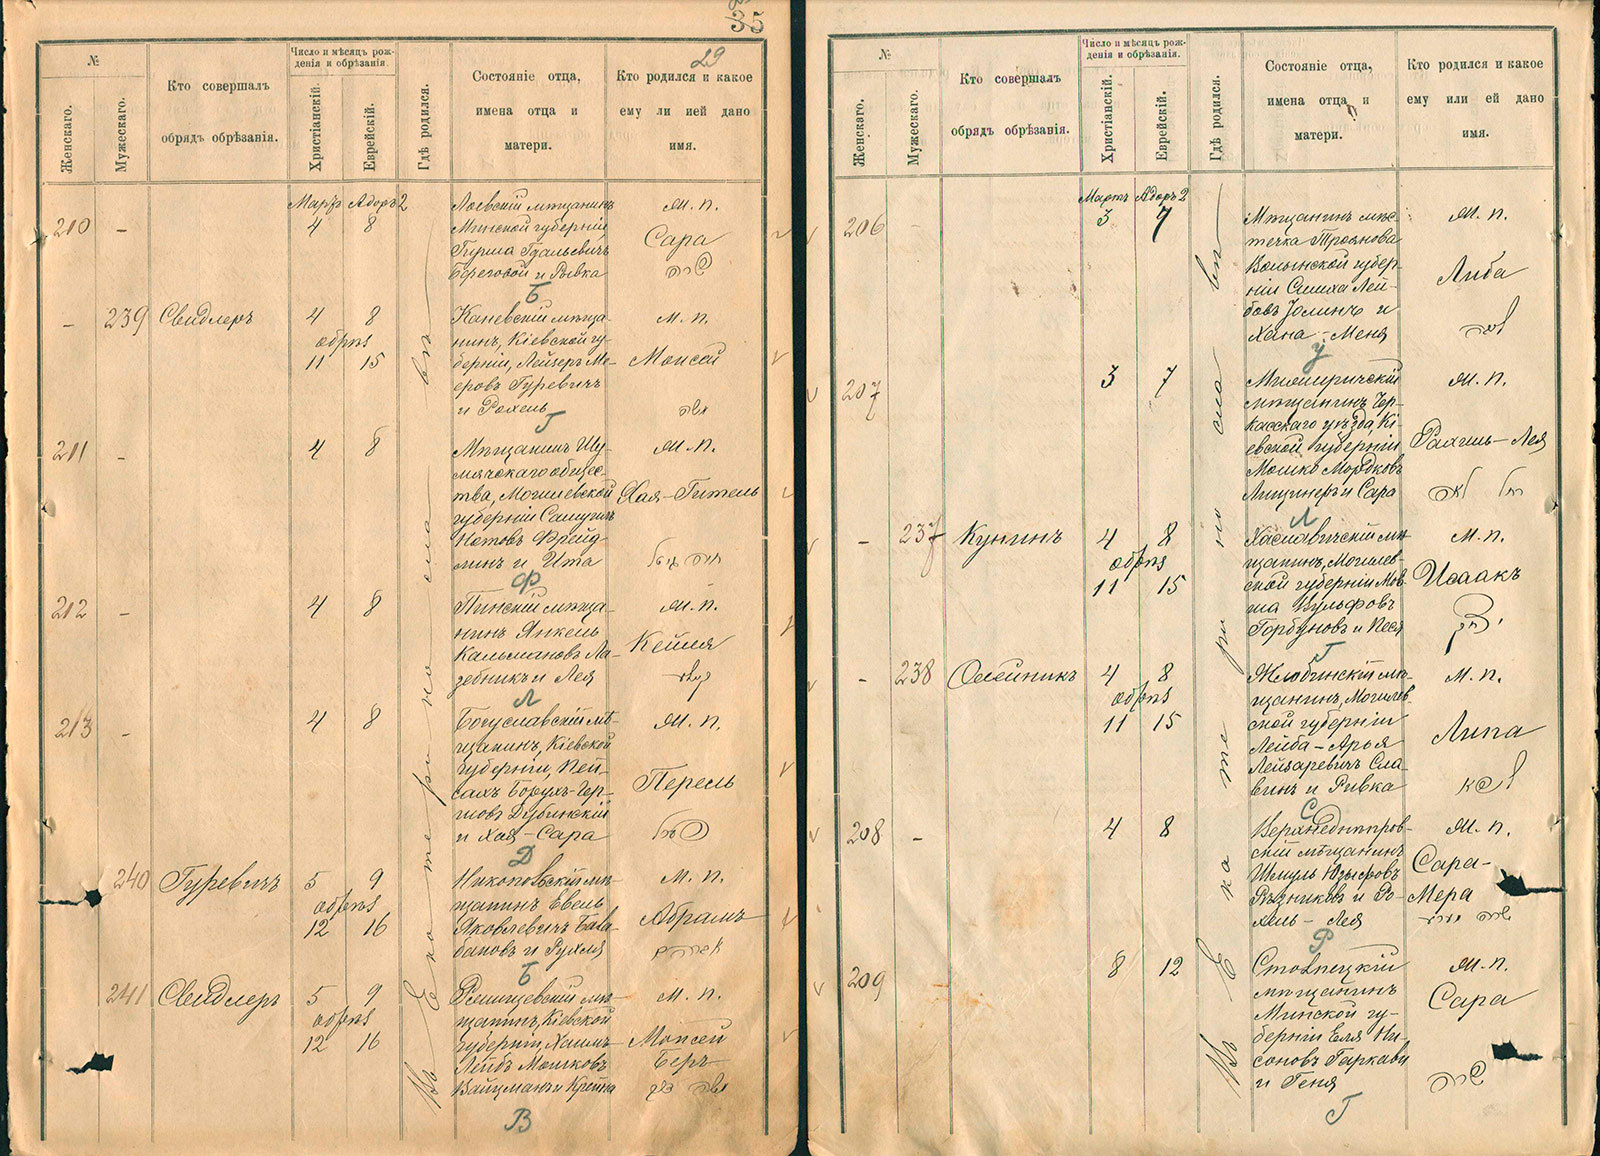 35
29
№
Женскаго.
Мужескаго.
Кто совершалъ
обрядъ обрѣзанія.
Число и мѣсяцъ рож-
денія и обрѣзанія.
Христіанскій.
Еврейскій.
Гдѣ родился.
Состояніе отца,
имена отца и
матери.
Кто родился и какое
ему ли ией дано
имя.
Мартъ Адоръ 2
210 - 4 8
Лоевскій мѣщанинъ
Минской губерніи
Гирша
Береговой и Рывка
Б
М. п.
Сара
שרה
- 239 Свидлеръ 4 8
обрѣз
11 15
Каневскій мѣща-
нинъ, Кіевской гу-
берніи, Лейзеръ Ме-
еровъ Гуревичъ
и Рохель
Г
М. п.
Моисей
משה
211 - 4 8
Мѣщанинъ Шу-
мячскаго общес-
тва, Могилевской
губерніи Самуилъ
Нотовъ Фрейд-
линъ и Ита
Ф
М. п.
Хая-Гитель
חיה גיטל
212 - 4 8
Пинскій мѣща-
нинъ Янкель
Кальмановъ Ла-
зебникъ и Лея
Л
М. п.
Кейля
213 - 4 8
Богуславскій мѣ-
щанинъ, Кіевской
губерніи, Пей-
сахъ Борухъ-Гер-
шовъ Дубинскій
и Хая-Сара
Д
М. п.
Перель
פערל
240 Гуревичъ 5 9
обрѣз
12 16
Никопольскій мѣ-
щанинъ Евель
Яковлевичъ Бала-
бановъ и Рухля
Б
М. п.
Абрамъ
אברהם
241 Свидлеръ 5 9
обрѣз
12 16
мѣ-
щанинъ, Кіевской
губерніи, Хаимъ-
Лейбъ Мошковъ
Вайцманъ и Крейна
В
М. п.
Моисей
Беръ
משה בער
Въ Екатеринославѣ
№
Женскаго.
Мужескаго.
Кто совершалъ
обрядъ обрѣзанія.
Число и мѣсяцъ рож-
денія и обрѣзанія.
Христіанскій.
Еврейскій.
Гдѣ родился.
Состояніе отца,
имена отца и
матери.
Кто родился и какое
ему или ей дано
имя.
Мартъ Адоръ 2
206 - 3 7
Мѣщанинъ мѣс-
течка Троянова
Волынской губер-
ніи Симха Лей-
бовъ Іолинъ и
Хана-Меня
М. п.
Либа
ליבה
207 3 7
мѣщанинъ Чер-
касскаго уѣзда, Кі-
евской губерніи
Мошко Мордковъ
Лищинеръ и Сара
Л
М. п.
Рахиль-Лея
רחל לאה
- 237 Кунинъ 4 8
обрѣз
11 15
Хаславичскій мѣ-
щанинъ, Могилев-
ской губерніи Мов-
ша Вульфовъ
Горбуновъ и Песя
Г
М. п.
Исаакъ
יצחק
- 238 Олейникъ 4 8
обрѣз
11 15
Жлобинскій мѣ-
щанинъ, Могилев-
ской губерніи
Лейба-Арья
Лейзаревичъ Сла-
винъ и Ривка
С
М. п.
Липа
ליפא
208 - 4 8
Верхнеднѣпров-
скій мѣщанинъ
Шмуль Юзефовъ
Рѣзниковъ и Ро-
хель-Лея
Р
М. п.
Сара-
Мера
שרה מערה
209 8 12
Столпецкій
мѣщанинъ
Минской гу-
берніи Еля Ни-
соновъ Гаркави
и Геня
Г
М. п.
Сара
שרה
Въ Екатеринославѣ